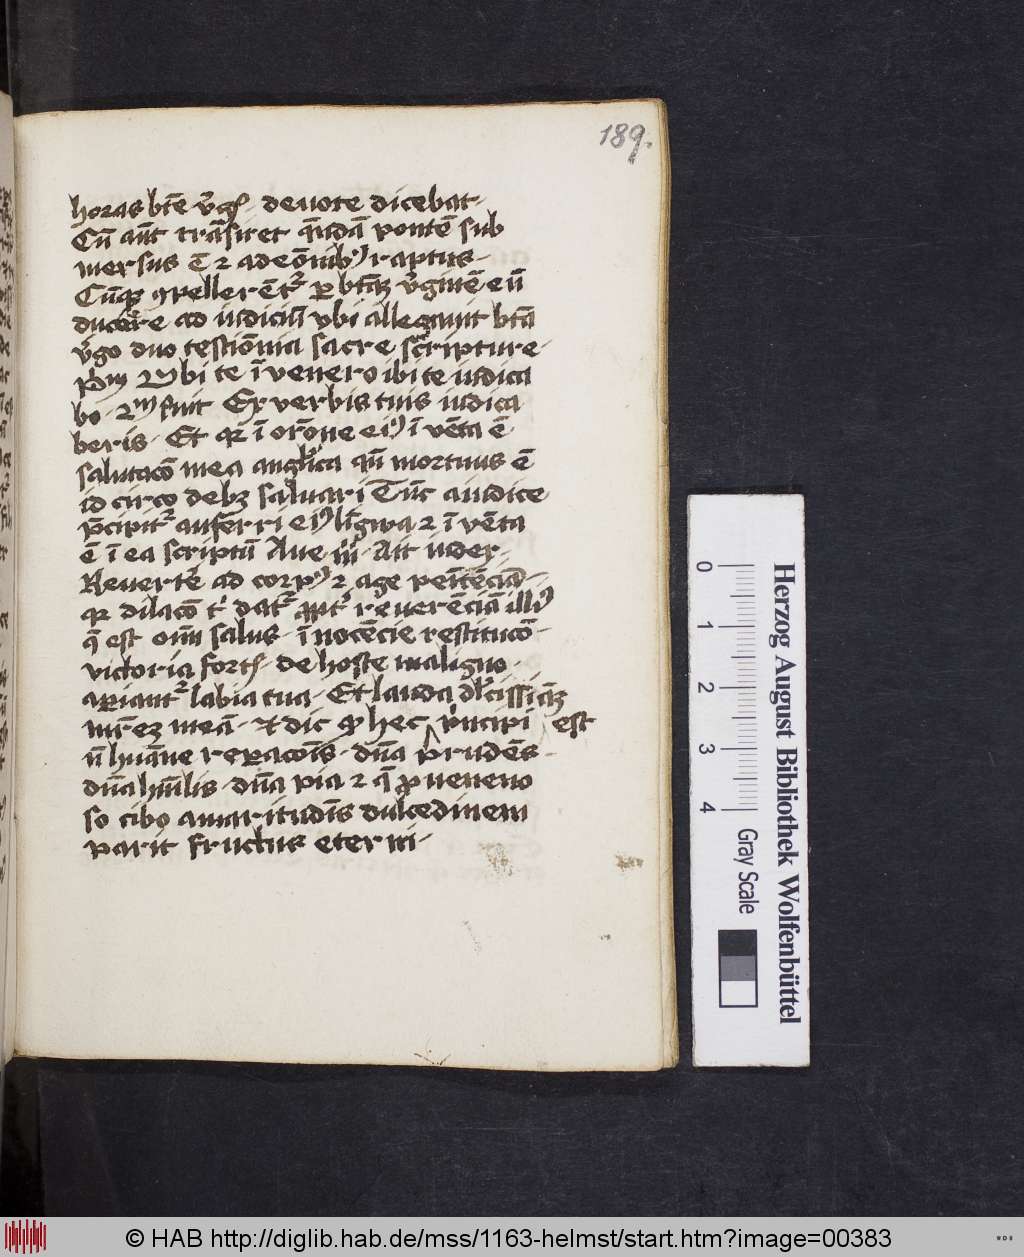 189.
horas bte̅ v̓gis · deuote dicebat ·
Cu̅ aut̅ tra̅siret qua̅da̅ ponte̅ sub
mersus e̅ ⁊ a demo̅ibꝰ raptus ·
Cu̅qꝫ ꝯpelleret̅ᷣ ꝑ bta̅ꝫ v̓gine̅ eu̅
ducere ad iudiciu̅ vbi allegauit bta̅
v̓go duo testimo̅nia sacre scripture ·
pͥmu̅ Vbi te i̅venero ibi te iudica
bo · 2m fuit Ex verbis tuis iudica
beris · Et qꝛ i̅ oro̅ne eiꝰ i̅ve̅ta e̅
salutaco̅ mea anglica qn̅ mortuus e̅
idcirco debꝫ saluari Tu̅c a iudice
p̅cipitᷣ auferri eiꝰ li̅gwa ⁊ i̅ve̅ta
e̅ i̅ ea scriptu̅ Aue m̅ · Ait iudex ·
Reuerte̓ ad corpꝰ ⁊ age penite̅cia̅ ·
qꝛ dilaco̅ t̓ datᷣ ꝓpt̓ reuere̅cia̅ illiꝰ
q̅ est oi̅m salus · i̅noce̅cie restituco̅ ·
victoria fortis · de hoste maligno ·
apiantᷣ labia tua · Et lauda dl̓cissi̅aꝫ
mr̅eꝫ mea̅ · ⁊ dic ꝙ hec pͥncipi est
n̅ hua̅ne repaco̅is · dn̅a prude̅s ·
dn̅a hu̅ilis · dn̅a pia ⁊ q̅ ꝓ veneno
so cibo amaritudi̅s dulcedinem
parit fructus eterni ·
Herzog August Bibliothek Wolfenbüttel
0 1 2 3 4 Gray Scale
© HAB http://diglib.hab.de/mss/1163-helmst/start.htm?image=00383